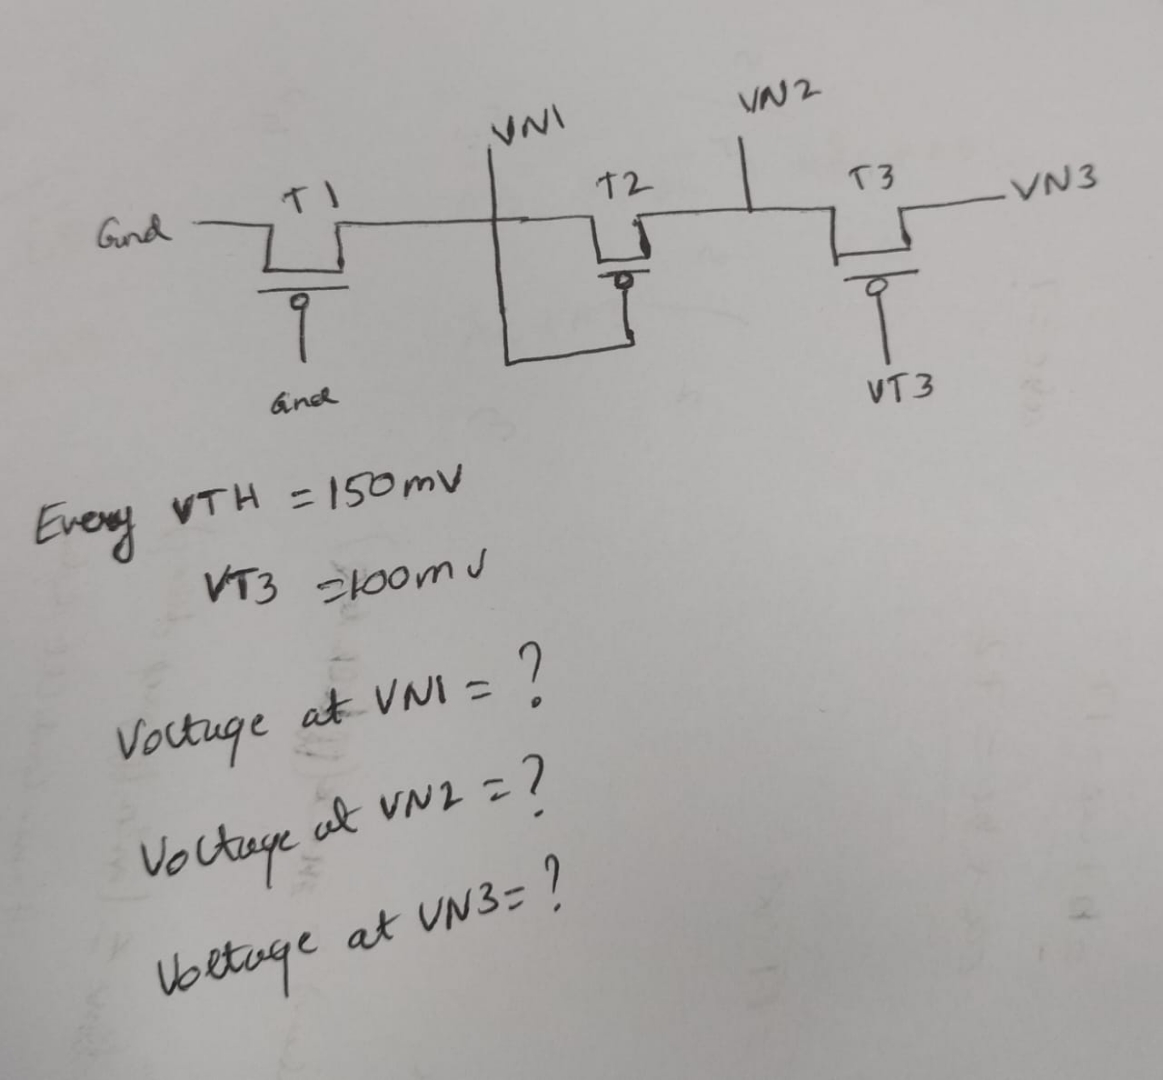 VN2
VN1
T1
T2
T3
VN3
Gnd
Gnd
VT3
Every VTH = 150mV
VT3 = 100mV
Voltage at VN1 = ?
Voltage at VN2 = ?
Voltage at VN3 = ?